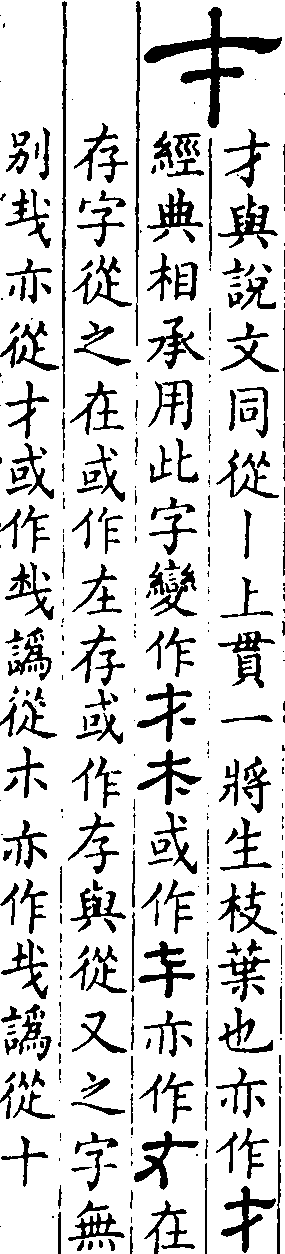 才與說文同從丨上貫一將生枝葉也亦作才
經典相承用此字變作才木或作𠦂亦作丈在
存字從之在或作在存或作存與從又之字無
別𢦏亦從才或作𢦏譌從木亦作𢦏譌從十